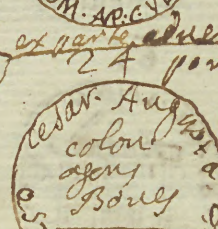 M. AP. CV
ex parte
24 por
cesar. August
colon
agens
Boues